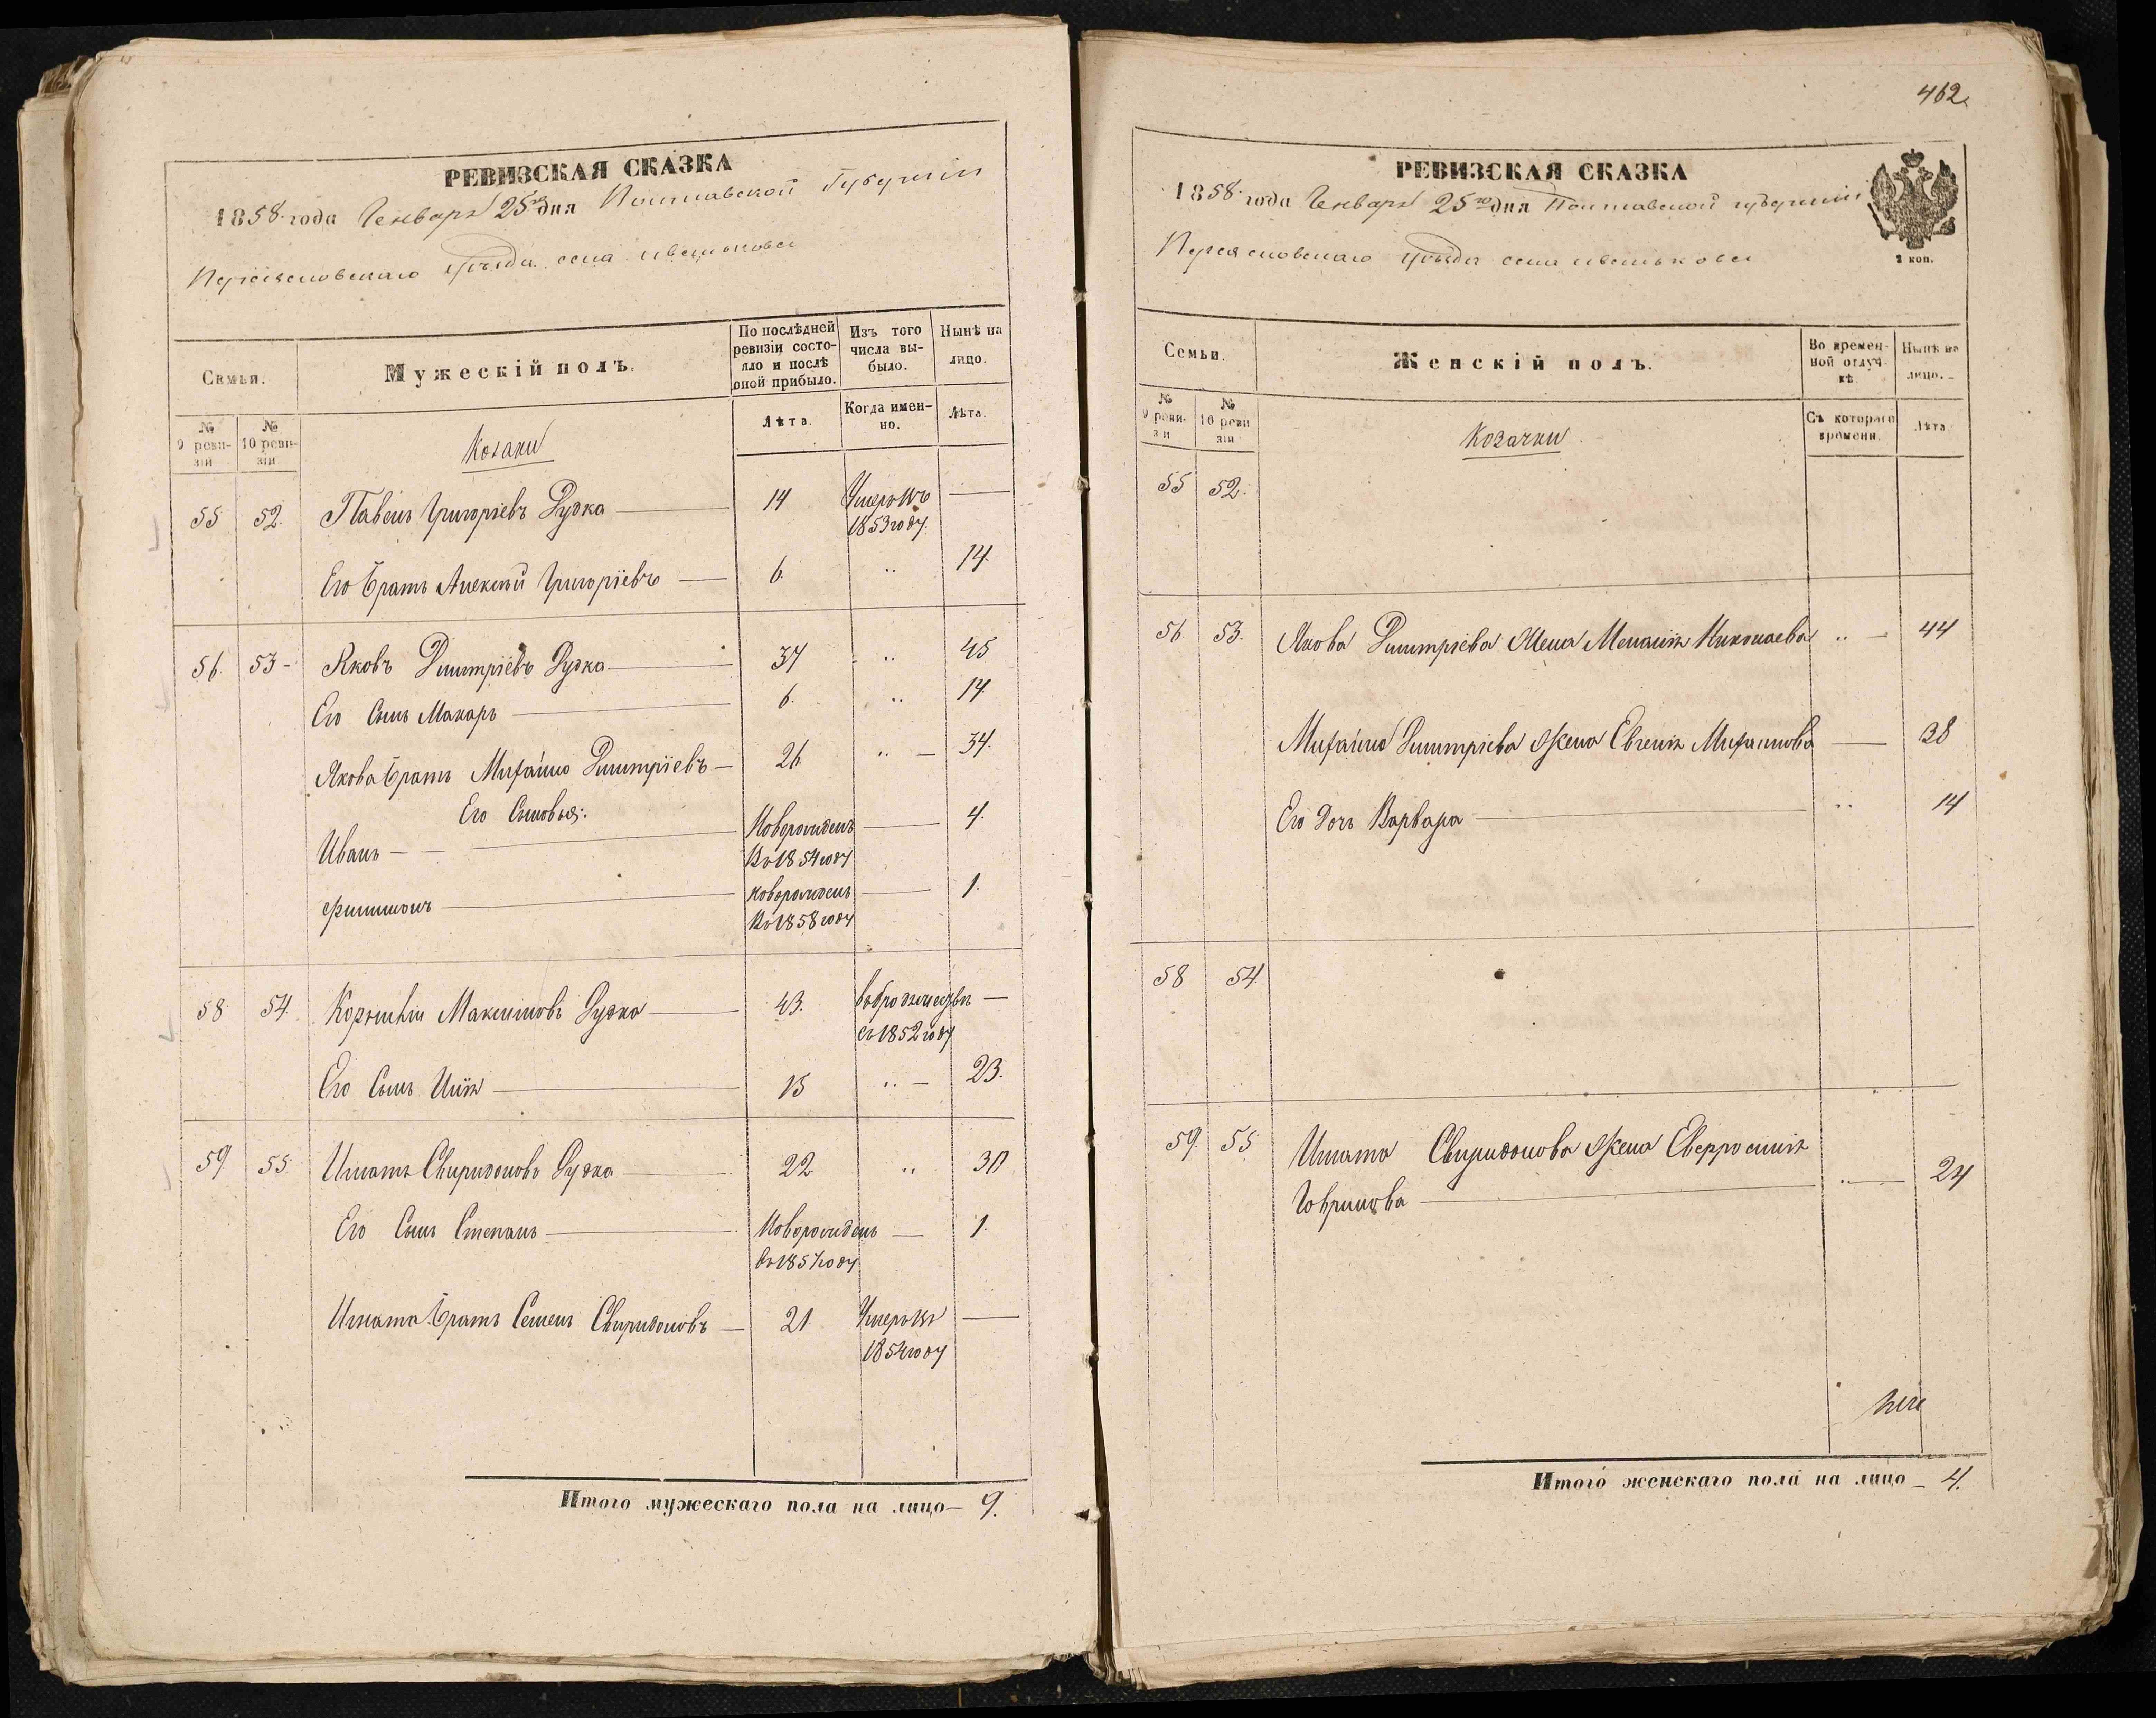 РЕВИЗСКАЯ СКАЗКА
1858 года Генваря 25го дня Полтавской Губернии
Переяславскаго уѣзда села
Семьи.
Мужескій полъ.
По послѣдней ревизіи состояло и послѣ оной прибыло.
Изъ того числа выбыло.
Нынѣ на лицо.
№ 9 ревизіи
№ 10 ревизіи.
Козаки
Лѣта.
Когда именно.
Лѣта.
55 52. Павелъ Григоріевъ Дудка — 14 Умеръ въ —
1853 году.
Его братъ Алексѣй Григоріевъ — 6. .. 14.
56. 53 - Яковъ Дмитріевъ Дудка — 37 .. 45
Его Сынъ Макаръ — 6. .. 14.
Якова братъ Михайло Дмитріевъ — 26 .. — 34.
Его Сыновья:
Иванъ — — Новорожденъ — 4.
Въ 1854 году
Филимонъ — новорожденъ — 1.
Въ 1858 году
58 54. Корнилій Максимовъ Дудка — 43. —
съ 1852 году
Его Сынъ Илія — 15 .. — 23.
59. 55. Игнатъ Свиридоновъ Дудка — 22 .. 30
Его Сынъ Степанъ — Новорожденъ — 1.
въ 1857 году
Игната братъ Семенъ Свиридоновъ — 21 Умеръ въ —
1854 году
Итого мужескаго пола на лицо — 9.
462.
РЕВИЗСКАЯ СКАЗКА
1858 года Генваря 25го дня Полтавской губернии
Переяславскаго уѣзда села
2 коп.
Семьи.
Женскій полъ.
Во временной отлучкѣ.
Нынѣ на лицо.
№ 9 ревизіи
№ 10 ревизіи
Козачки
Съ котораго времени.
Лѣта.
55 52.
56 53. Якова Дмитріева Жена Меланія Николаева .. — 44
Михайла Дмитріева Жена Евгенія — 38
Его дочь Варвара — .. 14
58 54.
59. 55. Игната Свиридонова Жена Евфросинія
Говрилова — .. — 24
Итого женскаго пола на лицо — 4.